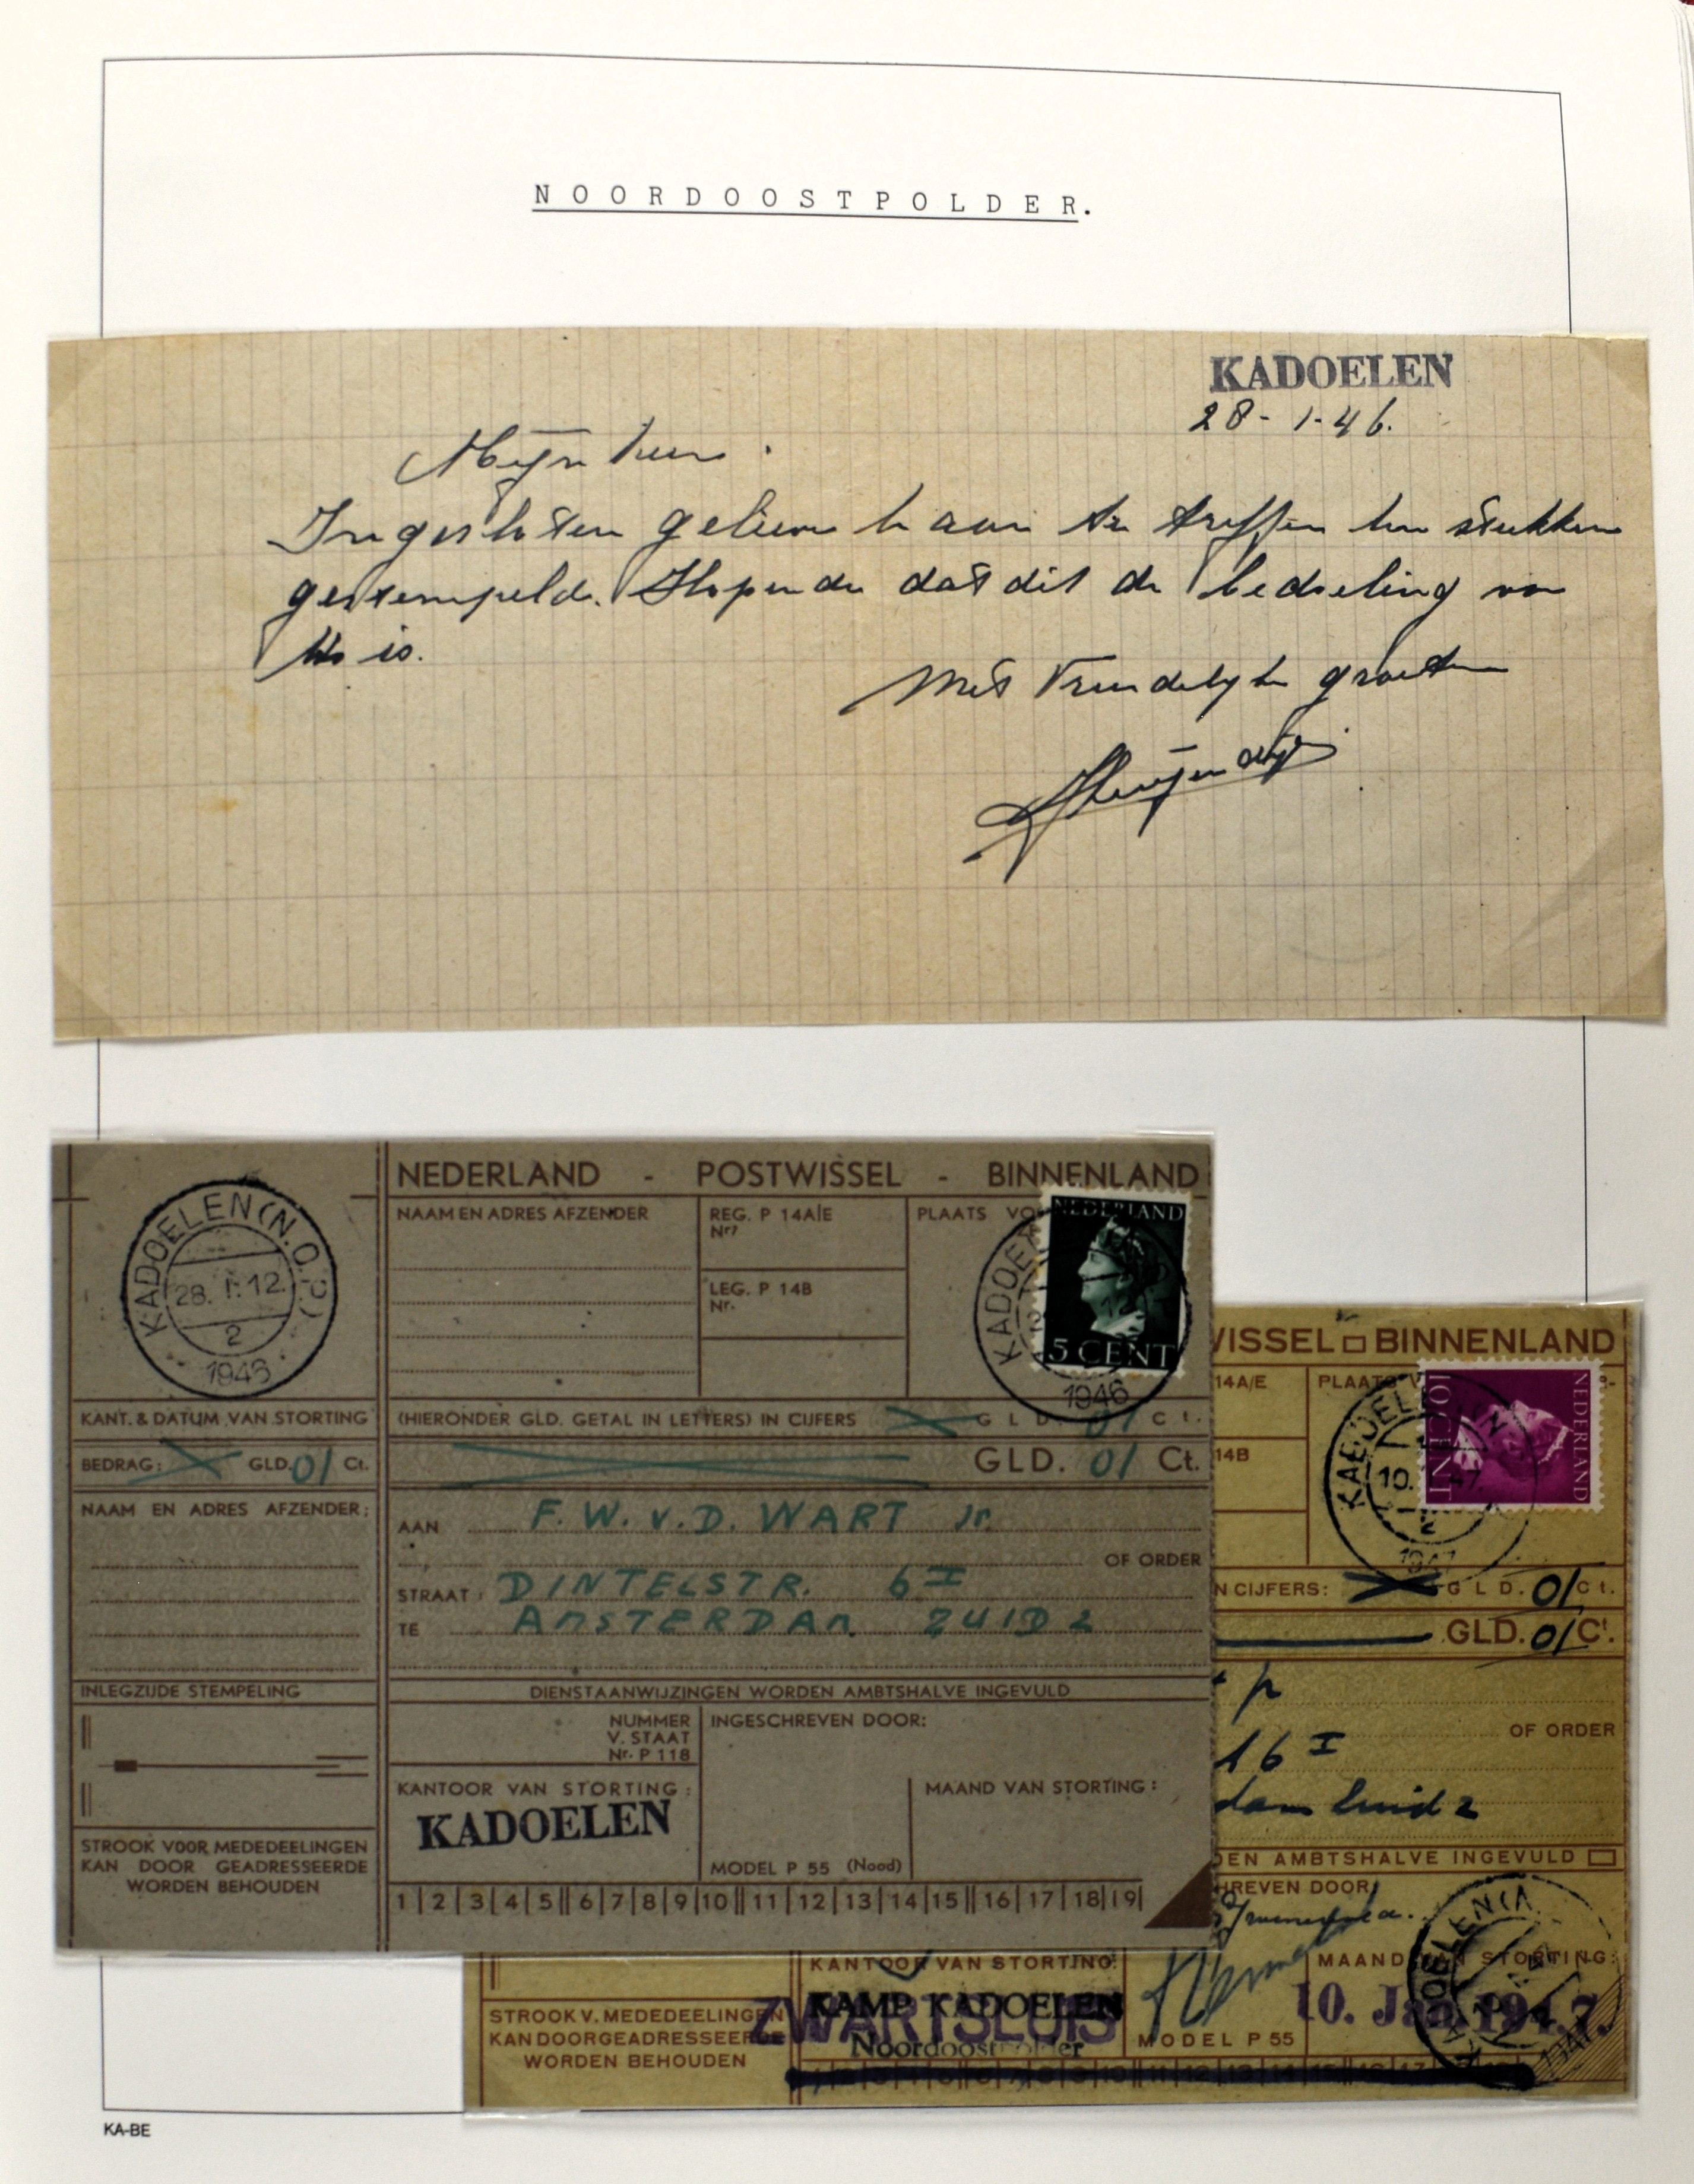 NOORDOOSTPOLDER.
KADOELEN
28-1-46.
Mijn Heer.
Ingesloten gelieve U aan te treffen uw stukken
gestempeld. Hopende dat dit de bedoeling van
U is.
Met Vriendelijke groeten
KADOELEN (N.O.P.)
28. 1. 12.
2
1946
KANT. & DATUM VAN STORTING
BEDRAG: GLD. 01 Ct.
NAAM EN ADRES AFZENDER:
INLEGZIJDE STEMPELING
STROOK VOOR MEDEDEELINGEN
KAN DOOR GEADRESSEERDE
WORDEN BEHOUDEN
NEDERLAND - POSTWISSEL - BINNENLAND
NAAM EN ADRES AFZENDER
REG. P 14A/E
Nr.
LEG. P 14B
Nr.
PLAATS VO
NEDERLAND
5 CENT
KADOE
1946
(HIERONDER GLD. GETAL IN LETTERS) IN CIJFERS GLD. 01 Ct.
GLD. 01 Ct.
AAN F. W. v. D. WART Jr.
OF ORDER
STRAAT: DINTELSTR. 6 I
TE AMSTERDAM ZUID 2
DIENSTAANWIJZINGEN WORDEN AMBTSHALVE INGEVULD
NUMMER
V. STAAT
Nr. P 118
INGESCHREVEN DOOR:
KANTOOR VAN STORTING:
KADOELEN
MAAND VAN STORTING:
MODEL P 55 (Nood)
1 2 3 4 5 6 7 8 9 10 11 12 13 14 15 16 17 18 19
WISSEL BINNENLAND
14A/E
PLAATS V
14B
NEDERLAND
10 CENT
KADOELEN (N
10. 47.
2
1947
N CIJFERS: GLD. 01 Ct.
GLD. 01 Ct.
OF ORDER
16 I
dam Zuid 2
DEN AMBTSHALVE INGEVULD
HREVEN DOOR
KANTOOR VAN STORTING:
MAAND VAN STORTING:
KAMP KADOELEN
ZWARTSLUIS
Noordoostpolder
10. Jan 1947.
KADOELEN (N
1947
MODEL P 55
STROOK V. MEDEDEELINGEN
KAN DOOR GEADRESSEERDE
WORDEN BEHOUDEN
KA-BE